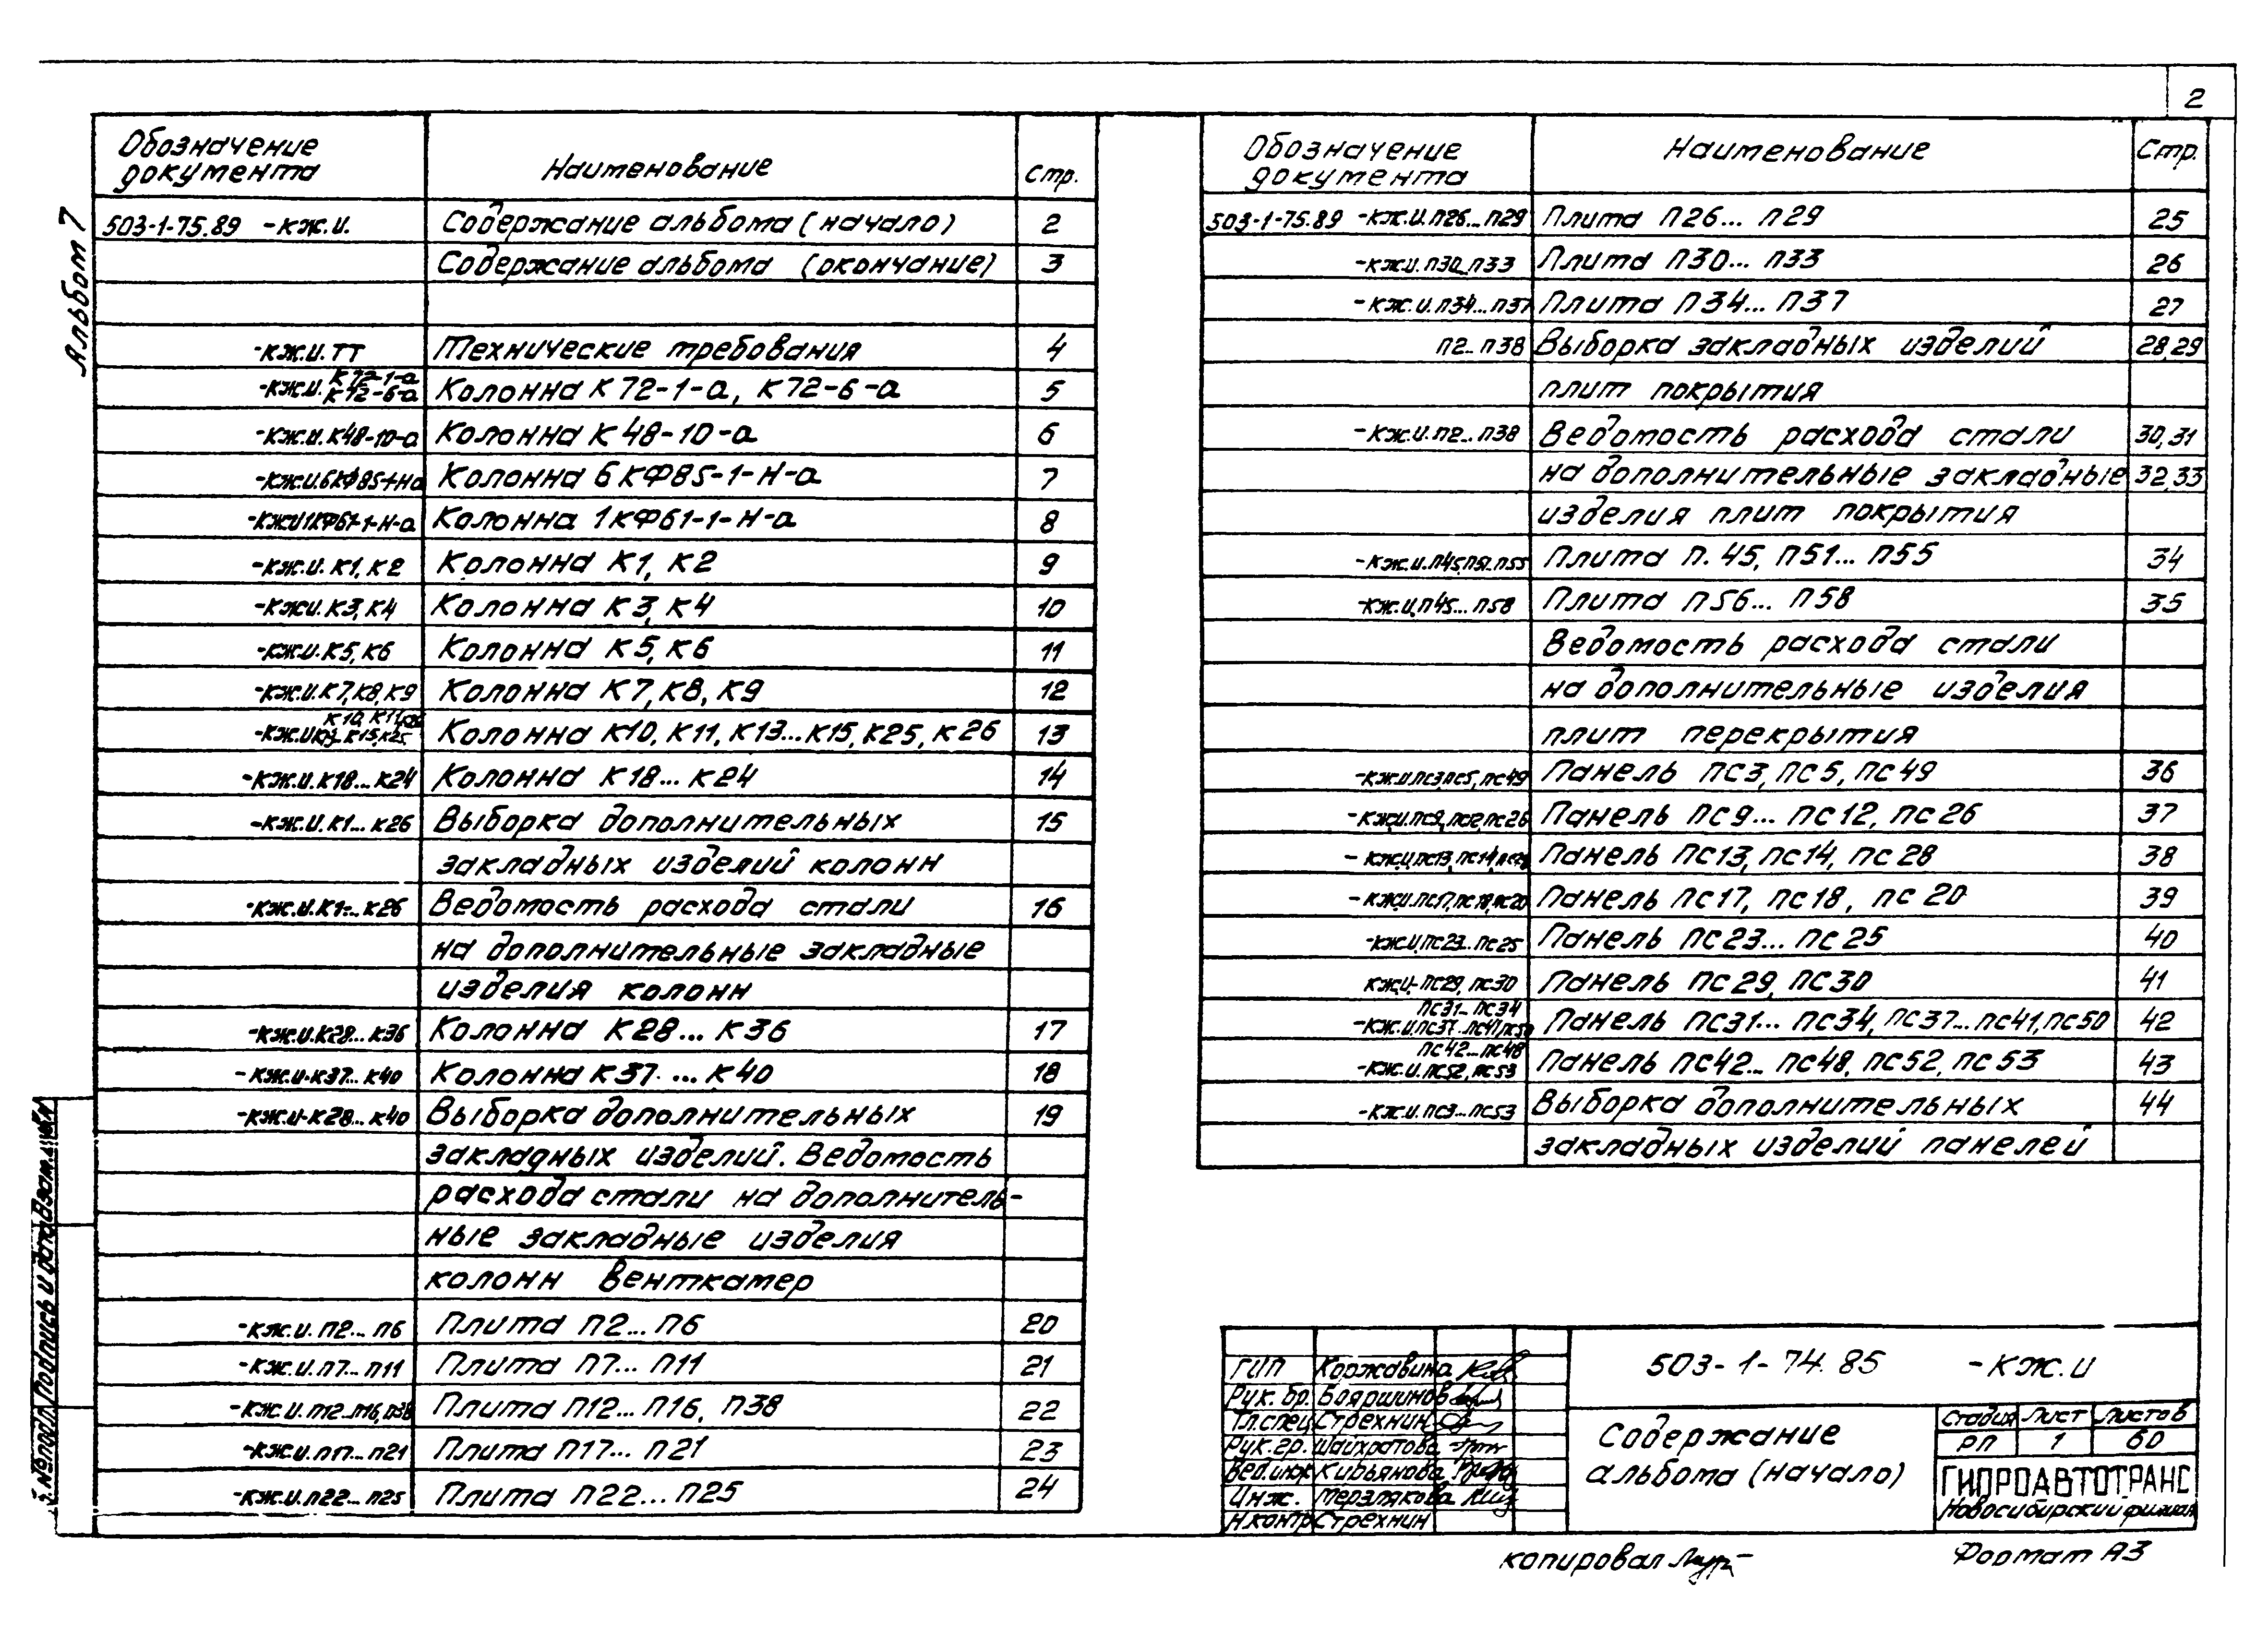 2
Альбом 7
Обозначение документа Наименование Стр.
503-1-75.89 -КЖ.И. Содержание альбома (начало) 2
Содержание альбома (окончание) 3
-КЖ.И. ТТ Технические требования 4
-КЖ.И. К72-1-а К72-6-а Колонна К72-1-а, К72-6-а 5
-КЖ.И. К48-10-а Колонна К48-10-а 6
-КЖ.И.6КФ85-1-Н-а Колонна 6КФ85-1-Н-а 7
-КЖИ1КФ61-1-Н-а Колонна 1КФ61-1-Н-а 8
-КЖ.И. К1, К2 Колонна К1, К2 9
-КЖИ. К3, К4 Колонна К3, К4 10
-КЖ.И. К5, К6 Колонна К5, К6 11
-КЖ.И. К7, К8, К9 Колонна К7, К8, К9 12
-КЖ.И. К10, К11, К15, К25 Колонна К10, К11, К13...К15, К25, К26 13
-КЖ.И. К18... К24 Колонна К18... К24 14
-КЖ.И. К1... К26 Выборка дополнительных 15
закладных изделий колонн
-КЖ.И. К1... К26 Ведомость расхода стали 16
на дополнительные закладные
изделия колонн
-КЖ.И.К28... К36 Колонна К28... К36 17
-КЖ.И-К37... К40 Колонна К37... К40 18
-КЖ.И-К28... К40 Выборка дополнительных 19
закладных изделий. Ведомость
расхода стали на дополнитель-
ные закладные изделия
колонн венткамер
-КЖ.И. П2... П6 Плита П2... П6 20
-КЖ.И. П7... П11 Плита П7... П11 21
-КЖ.И. П12...П16, П38 Плита П12... П16, П38 22
-КЖ.И. П17... П21 Плита П17... П21 23
-КЖ.И. П22... П25 Плита П22... П25 24
Обозначение документа Наименование Стр.
503-1-75.89 -КЖ.И. П26... П29 Плита П26... П29 25
-КЖ.И. П30...П33 Плита П30... П33 26
-КЖ.И. П34... П37 Плита П34... П37 27
П2... П38 Выборка закладных изделий 28,29
плит покрытия
-КЖ.И. П2... П38 Ведомость расхода стали 30,31
на дополнительные закладные 32,33
изделия плит покрытия
-КЖ.И. П45,П51...П55 Плита П.45, П51... П55 34
-КЖ.И,П45... П58 Плита П56... П58 35
Ведомость расхода стали
на дополнительные изделия
плит перекрытия
-КЖ.И.ПС3,ПС5, ПС49 Панель ПС3, ПС5, ПС49 36
-КЖ.И.ПС9, ПС12, ПС26 Панель ПС9... ПС12, ПС26 37
-КЖ.И.ПС13, ПС14, ПС28 Панель ПС13, ПС14, ПС28 38
-КЖ.И.ПС17, ПС18, ПС20 Панель ПС17, ПС18, ПС20 39
-КЖ.И.ПС23... ПС25 Панель ПС23... ПС25 40
КЖ.И.-ПС29, ПС30 Панель ПС29, ПС30 41
-КЖ.И. ПС31... ПС34 ПС37...ПС41, ПС50 Панель ПС31... ПС34, ПС37...ПС41, ПС50 42
-КЖ.И. ПС42... ПС48 ПС52, ПС53 Панель ПС42... ПС48, ПС52, ПС53 43
-КЖ.И. ПС3... ПС53 Выборка дополнительных 44
закладных изделий панелей
№ подл. Подпись и дата Взам.
ГИП Коржавина
Рук. бр. Бояршинов
Гл.спец Стрехнин
Рук. гр. Шайхратова
Вед.инж Кирьянова
Инж. Мерзлякова
Н.контр Стрехнин
503-1-74.85 -КЖ.И
Содержание
альбома (начало)
Стадия Лист Листов
РП 1 60
ГИПРОАВТОТРАНС
Новосибирский филиал
копировал
Формат А3